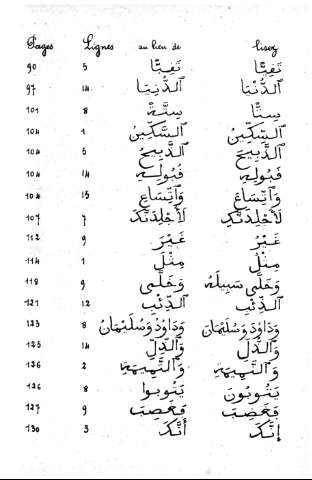 Pages Lignes au lieu de lisez
90 5 تَفِيًّا تَفِيًّا
97 14 اَلدُّنِيَا اَلدُّنْيَا
101 8 سِتَّةً سِتًّا
104 1 اَلسَّكِّينُ اَلسِّكِّينُ
104 5 اَلذَّبِيحُ اَلذَّبِيحَ
104 14 قَبُولِهِ قَبُولِهِ
104 15 وَاتِّسَاعِ وَاتِّسَاعَ
107 7 لَأَجْلِدَنَّكَ لَأَجْلِدَنَّكِ
112 9 غَيْرَ غَيْرُ
114 1 مِثْلَ مِثْلُ
118 9 وَخَلَّى وَخَلَّى سَبِيلَهُ
121 12 اَلذِّئْبِ اَلذِّئْبَ
123 8 وَدَاوُدَ وَسُلَيْمَانَ وَدَاوُدَ وَسُلَيْمَانَ
125 14 وَالذُّلِّ وَالذُّلِّ
126 2 وَالنَّمِيمَةِ وَالنَّمِيمَةِ
126 8 يَتُوبوا يَتُوبُونَ
127 9 فَغَضِبَ فَغَضِبَ
130 3 أَنَّكَ إِنَّكَ